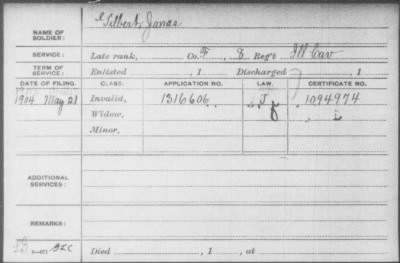 NAME OF SOLDIER: Gilbert, Jonas
SERVICE: Late rank, Co. F, 8 Reg't Ill Cav
TERM OF SERVICE: Enlisted , 1 Discharged , 1
DATE OF FILING. CLASS. APPLICATION NO. LAW. CERTIFICATE NO.
1904 May 21 Invalid, 1316606 J 1094974
Widow,
Minor,
ADDITIONAL SERVICES:
REMARKS:
Died , 1 , at